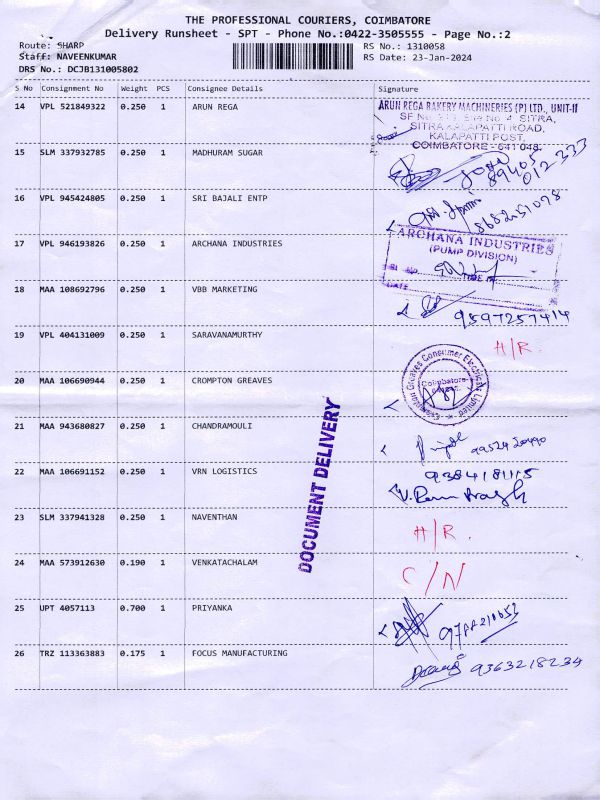 THE PROFESSIONAL COURIERS, COIMBATORE
Delivery Runsheet - SPT - Phone No.:0422-3505555 - Page No.:2
Route: SHARP
RS No.: 1310058
Staff: NAVEENKUMAR
RS Date: 23-Jan-2024
DRS No.: DCJB131005802
S No Consignment No Weight PCS Consignee Details Signature
14 VPL 521849322 0.250 1 ARUN REGA
ARUN REGA BAKERY MACHINERIES (P) LTD., UNIT-II
SITRA KALAPATTI ROAD,
KALAPATTI POST,
COIMBATORE - 641 048.
15 SLM 337932785 0.250 1 MADHURAM SUGAR
89405
012333
16 VPL 945424805 0.250 1 SRI BAJALI ENTP
8682451078
17 VPL 946193826 0.250 1 ARCHANA INDUSTRIES
ARCHANA INDUSTRIES
(PUMP DIVISION)
DATE
18 MAA 108692796 0.250 1 VBB MARKETING
9597257414
19 VPL 404131009 0.250 1 SARAVANAMURTHY
H/R.
20 MAA 106690944 0.250 1 CROMPTON GREAVES
Crompton Greaves Consumer Electricals Limited
Coimbatore
21 MAA 943680827 0.250 1 CHANDRAMOULI
22 MAA 106691152 0.250 1 VRN LOGISTICS
9384181115
23 SLM 337941328 0.250 1 NAVENTHAN
H/R.
24 MAA 573912630 0.190 1 VENKATACHALAM
C/N
25 UPT 4057113 0.700 1 PRIYANKA
26 TRZ 113363883 0.175 1 FOCUS MANUFACTURING
9363218234
DOCUMENT DELIVERY